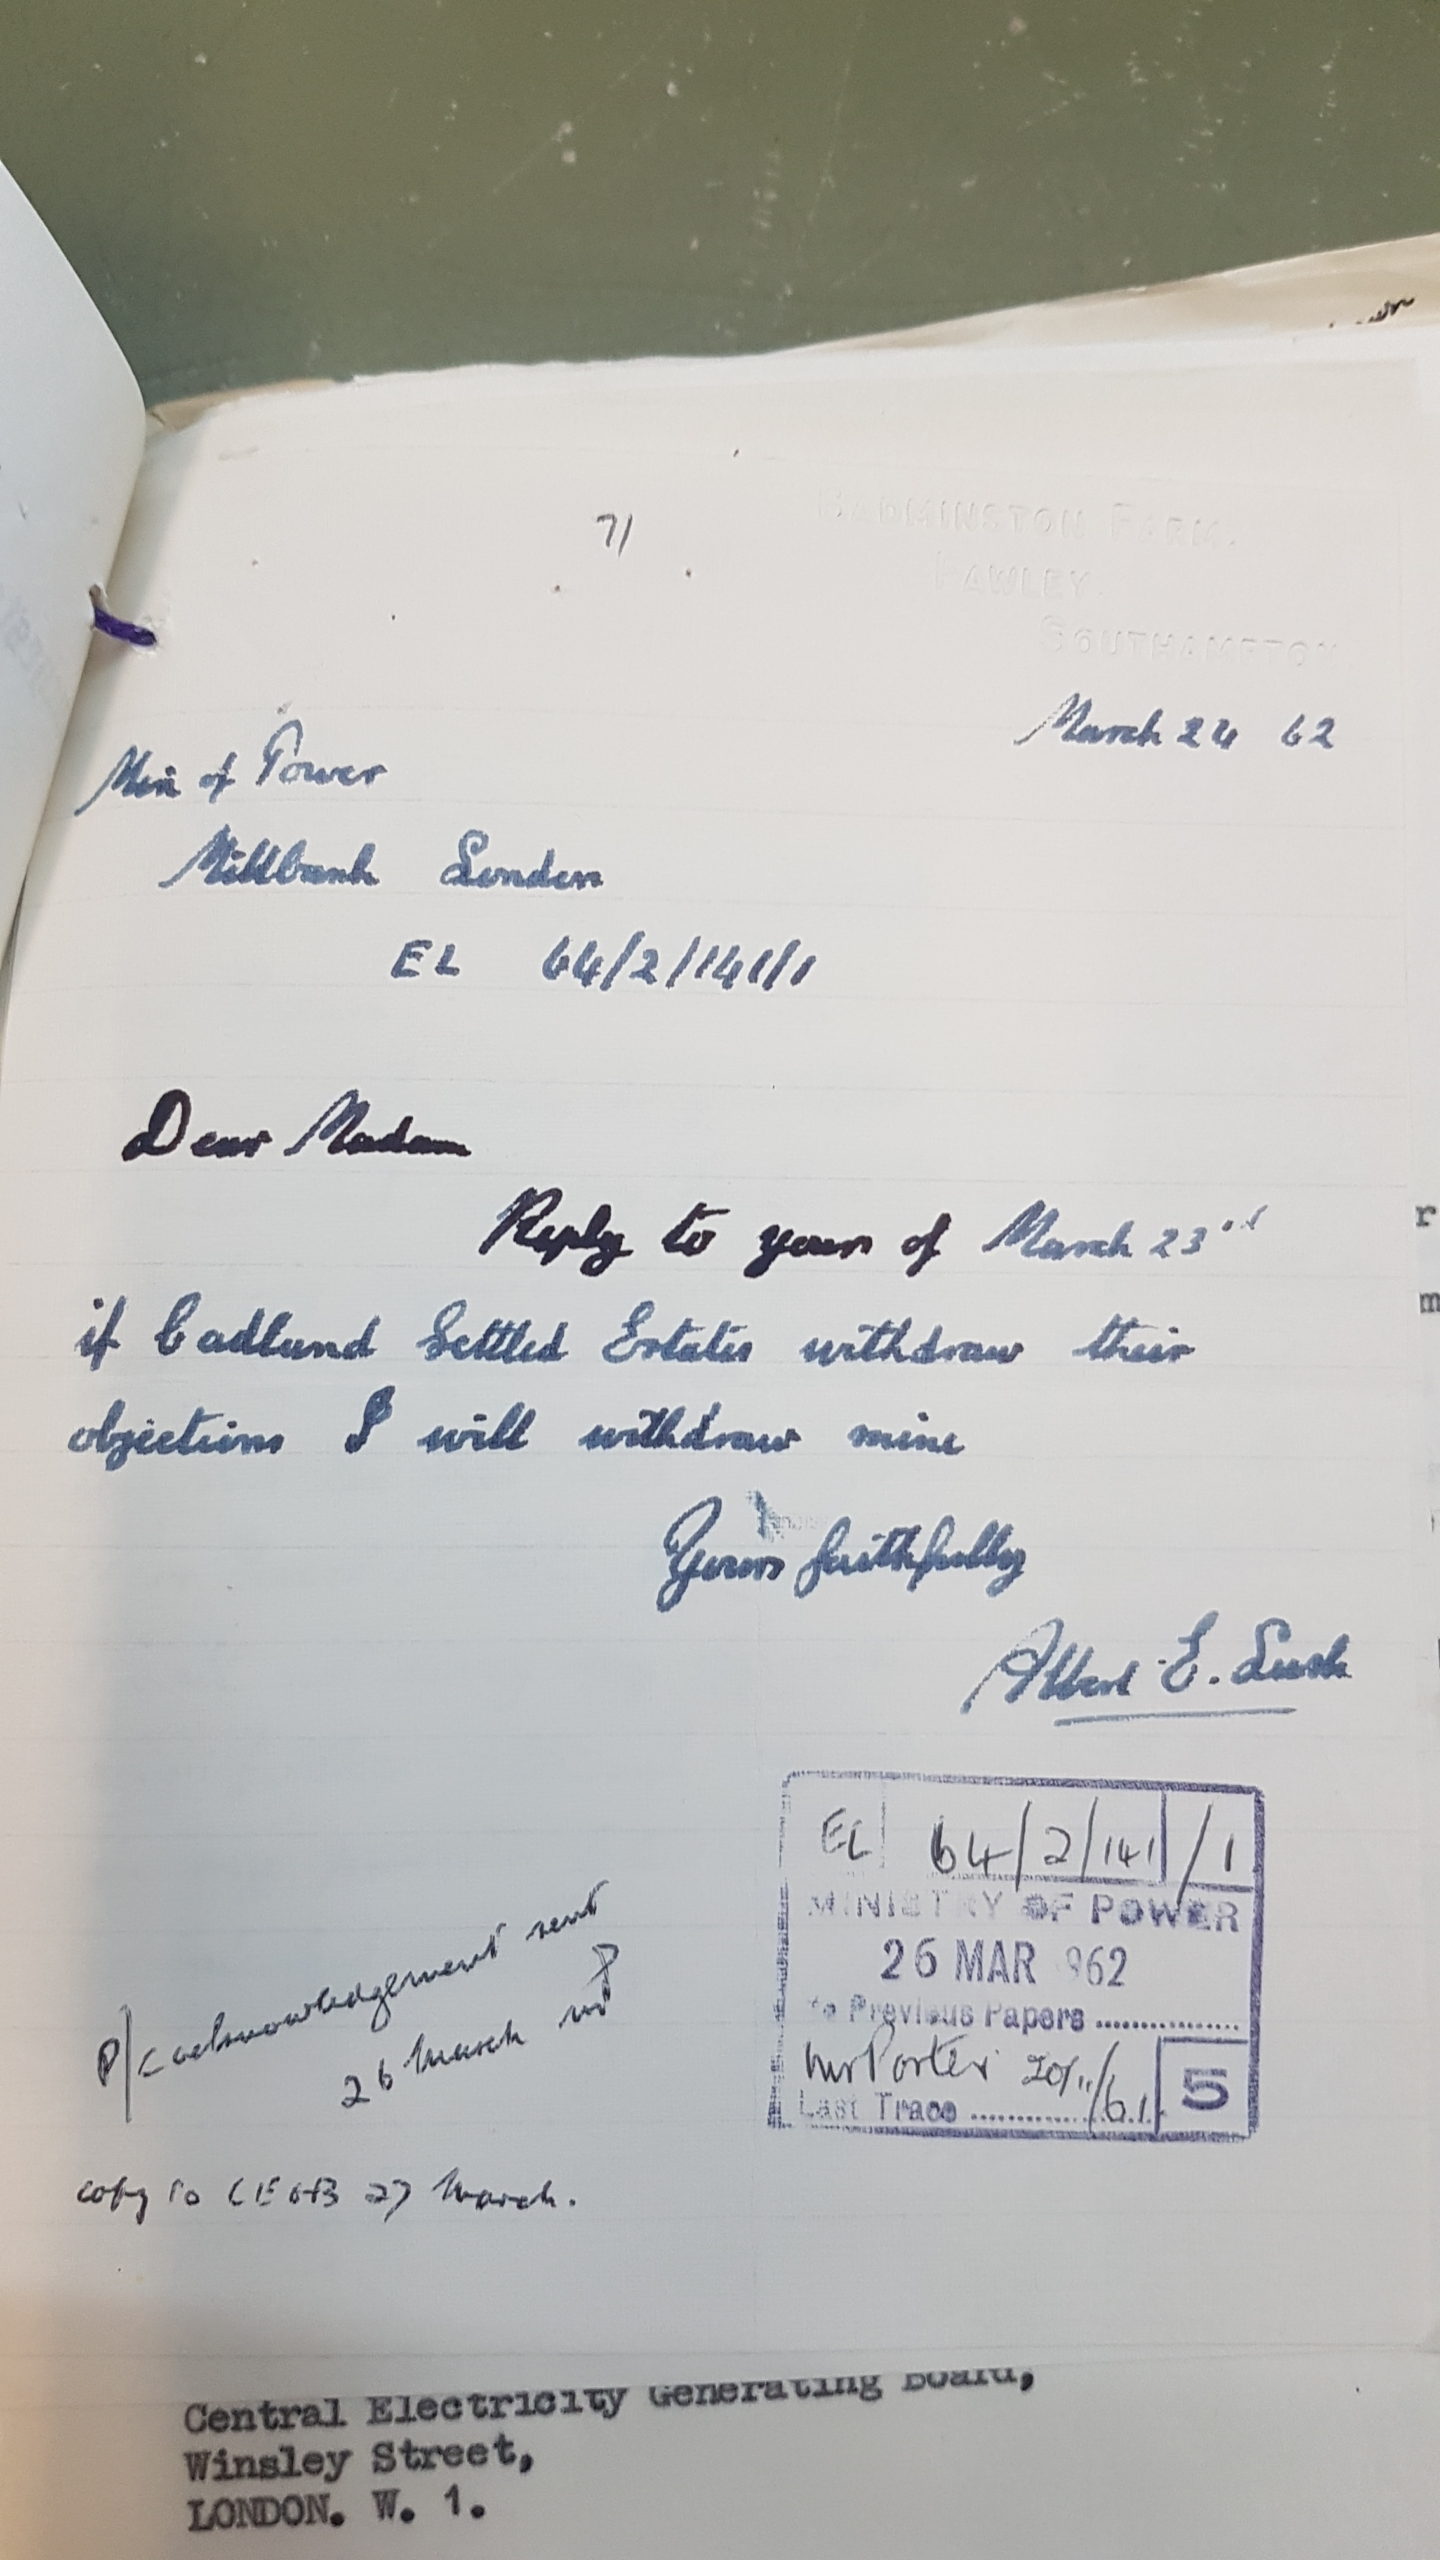 71
BADMINSTON FARM.
FAWLEY.
SOUTHAMPTON
March 24 62
Min of Power
Millbank London
EL 64/2/141/1
Dear Madam
Reply to yours of March 23rd
if Cadland Settled Estates withdraw their
objections I will withdraw mine
Yours faithfully
Albert E. Lush
EL 64/2/141/1
MINISTRY OF POWER
26 MAR 962
to Previous Papers
Mr Porter 20/11/61
Last Trace
5
P/c acknowledgement sent
26 March
copy to CEGB 27 March.
r
m
Central Electricity Generating Board,
Winsley Street,
LONDON. W. 1.